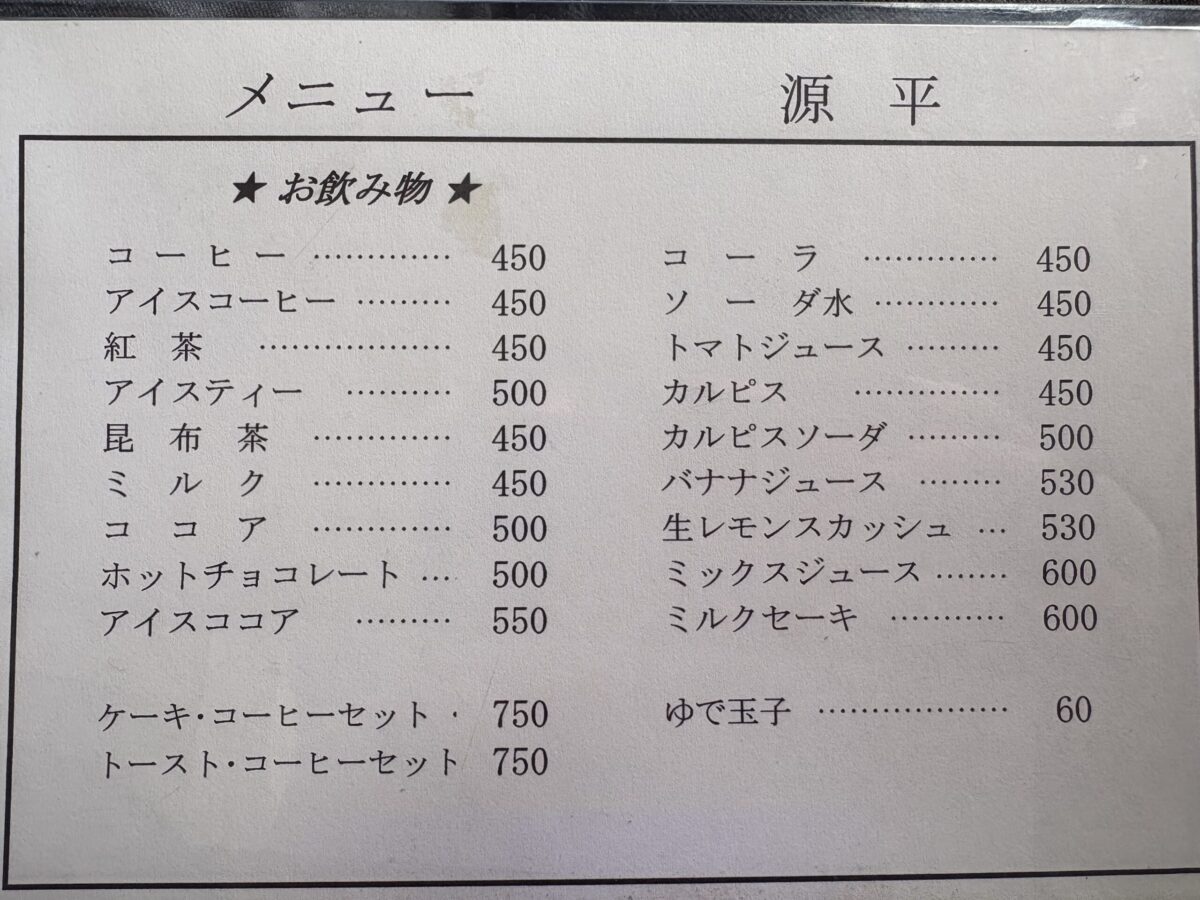 メニュー 源平
★ お飲み物 ★
コーヒー ………… 450
アイスコーヒー ……… 450
紅茶 ……………… 450
アイスティー ……… 500
昆布茶 ………… 450
ミルク ………… 450
ココア ………… 500
ホットチョコレート … 500
アイスココア ……… 550
ケーキ・コーヒーセット · 750
トースト・コーヒーセット 750
コーラ ………… 450
ソーダ水 ………… 450
トマトジュース ……… 450
カルピス ………… 450
カルピスソーダ ……… 500
バナナジュース ……… 530
生レモンスカッシュ … 530
ミックスジュース ……… 600
ミルクセーキ ………… 600
ゆで玉子 ……………… 60